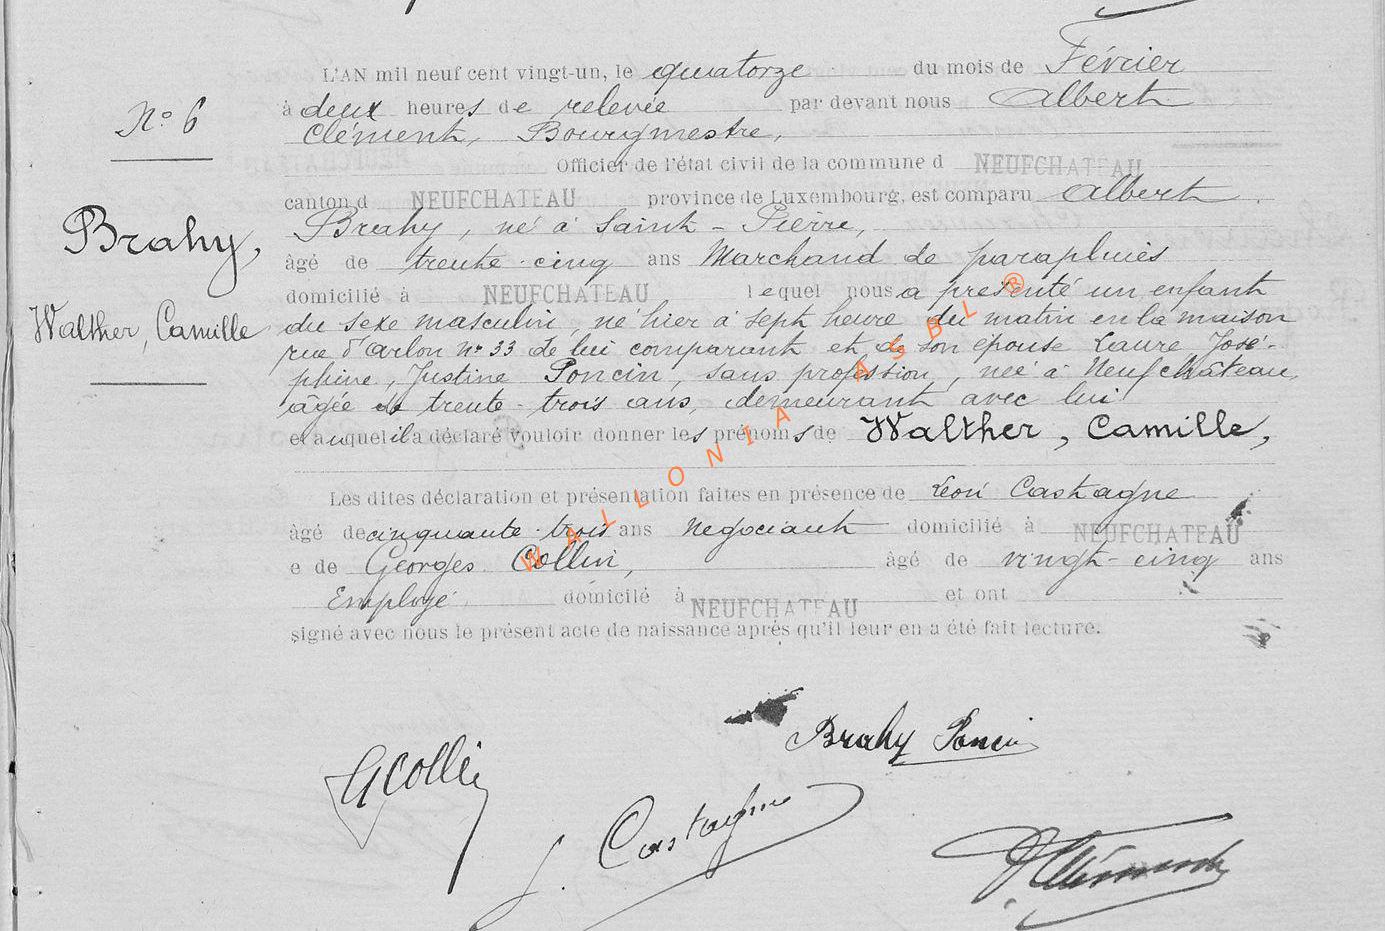 L'AN mil neuf cent vingt-un, le quatorze du mois de Février
N° 6
à deux heures de relevée par devant nous Albert
Clément, Bourgmestre,
Officier de l'état civil de la commune d NEUFCHATEAU
canton d NEUFCHATEAU province de Luxembourg, est comparu Albert
Brahy,
Brahy, né à Saint-Pierre,
âgé de trente-cinq ans Marchand de parapluies
domicilié à NEUFCHATEAU lequel nous a présenté un enfant
Walther, Camille
du sexe masculin, né hier à sept heure du matin en la maison
rue d'Arlon n° 33 de lui comparant et de son épouse Laure José-
phine, Justine Poncin, sans profession, née à Neufchâteau,
âgée de trente-trois ans, demeurant avec lui
et auquel il a déclaré vouloir donner les prénoms de Walther, Camille,
Les dites déclaration et présentation faites en présence de Léon Castagne
âgé de cinquante-trois ans Négociant domicilié à NEUFCHATEAU
e de Georges Collin, âgé de vingt-cinq ans
Employé domicilié à NEUFCHATEAU et ont
signé avec nous le présent acte de naissance après qu'il leur en a été fait lecture.
WALLONIA ASBL ®
Brahy Poncin
G Collin
J. Castagne
A Clément